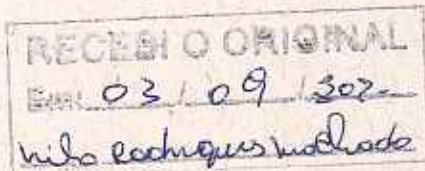 RECEBI O ORIGINAL
Em: 03 / 09 / 202
Rodrigues Machado